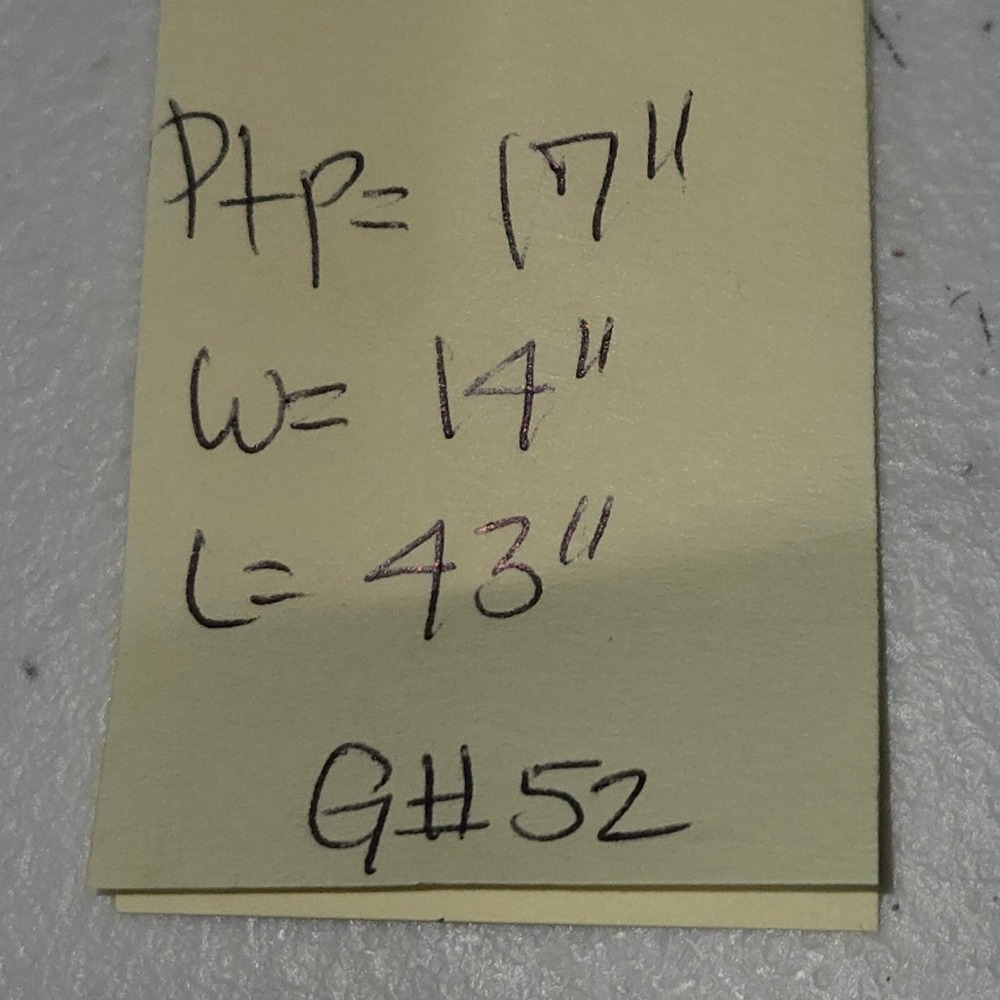 Ptp= 17"
W= 14"
L= 43"
G#52